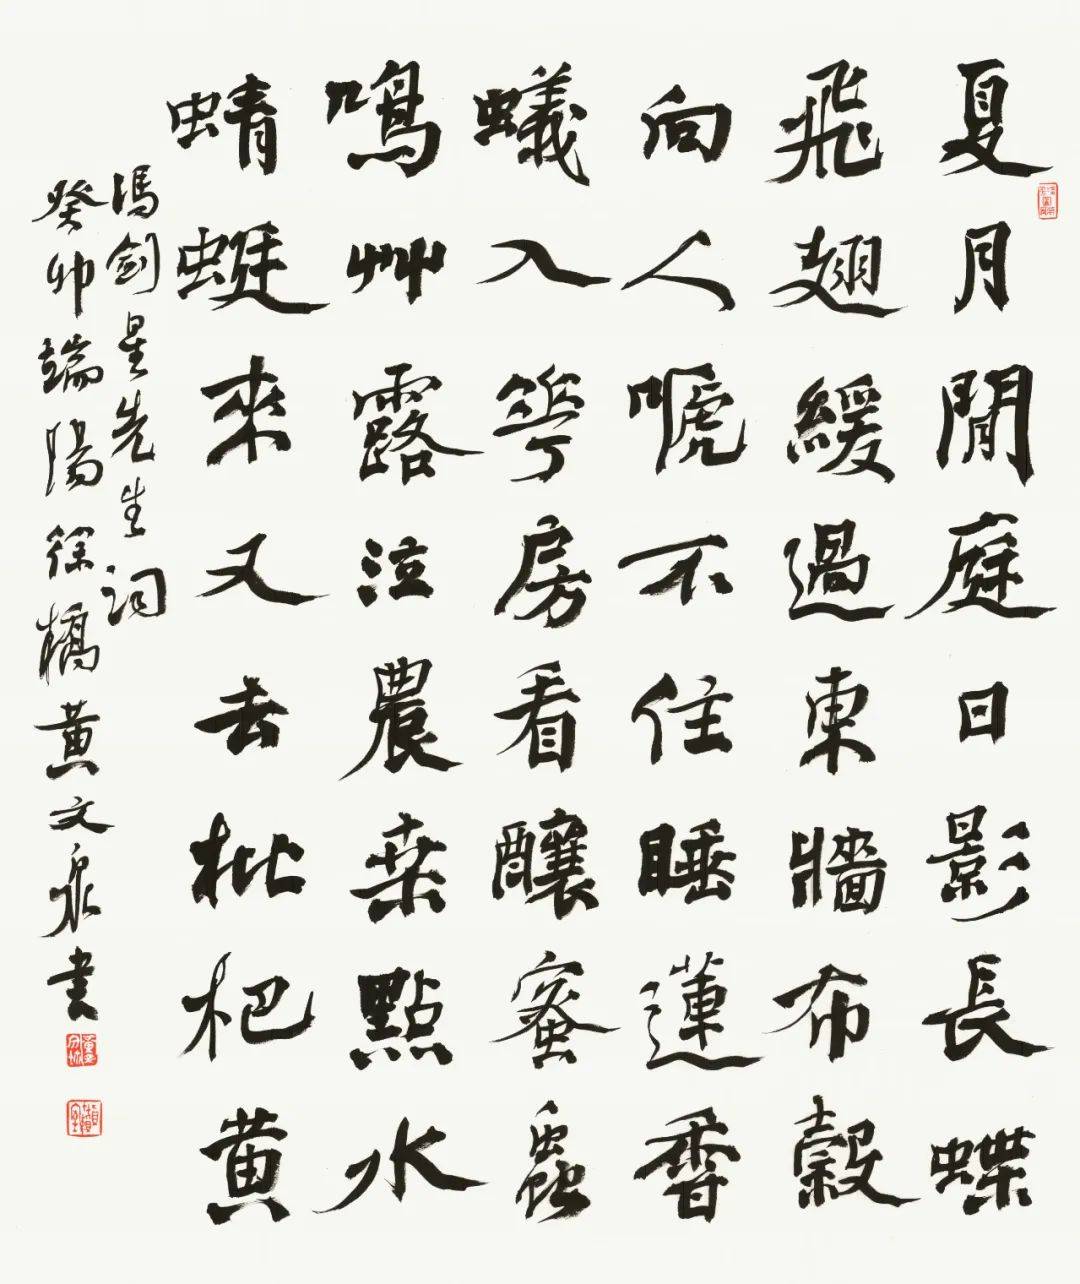 夏月閒庭日影長蝶
飛翅緩過東牆布穀
向人唬不住睡蓮香
蟻入花房看釀蜜蟲
鳴艸露泣農桒點水
蜻蜓來又去枇杷黄
馮劍星先生詞
癸卯端陽徐橋黄文泉書